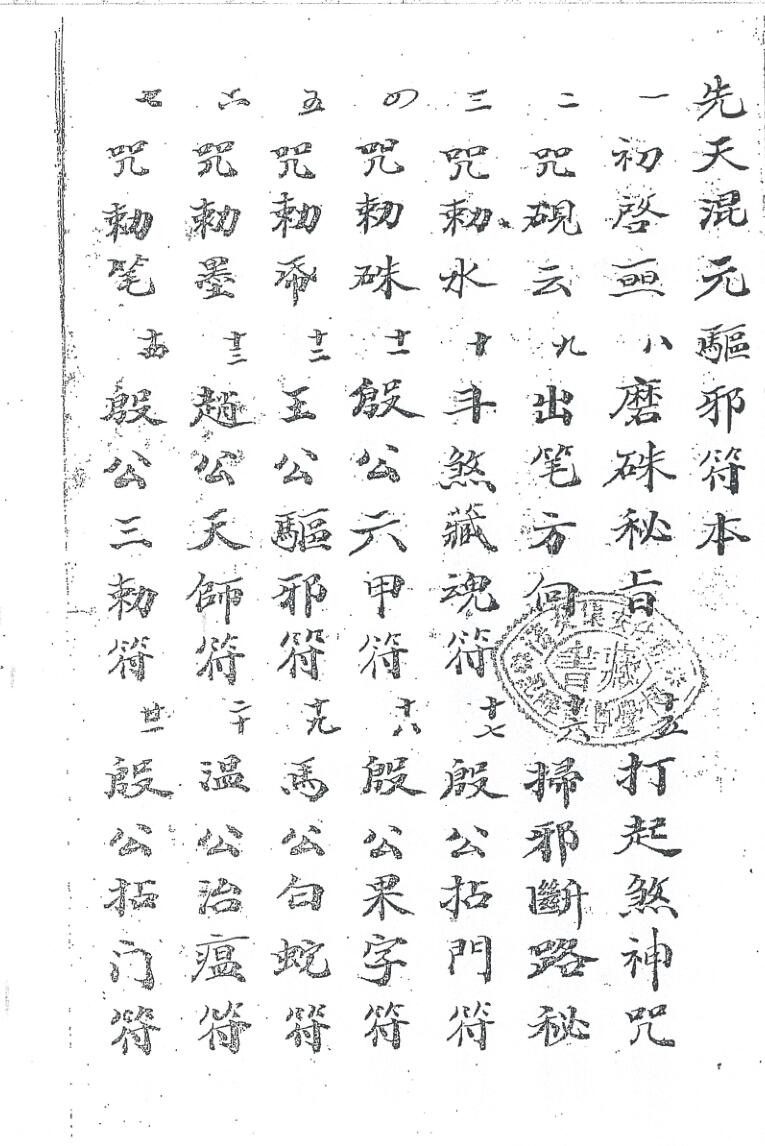 先天混元驅邪符本
一 初啓
二 咒硯云
三 咒勅水
四 咒勅硃
五 咒勅帋
六 咒勅墨
七 咒勅笔
八 磨硃秘旨
九 出笔方向
十 斗煞藏魂符
十一 殷公六甲符
十二 王公驅邪符
十三 趙公天師符
十四 殷公三勅符
十五 打起煞神咒
十六 掃邪斷路秘
十七 殷公拈門符
十八 殷公果字符
十九 馬公白蛇符
二十 温公治瘟符
廿一 殷公拈门符
藏書